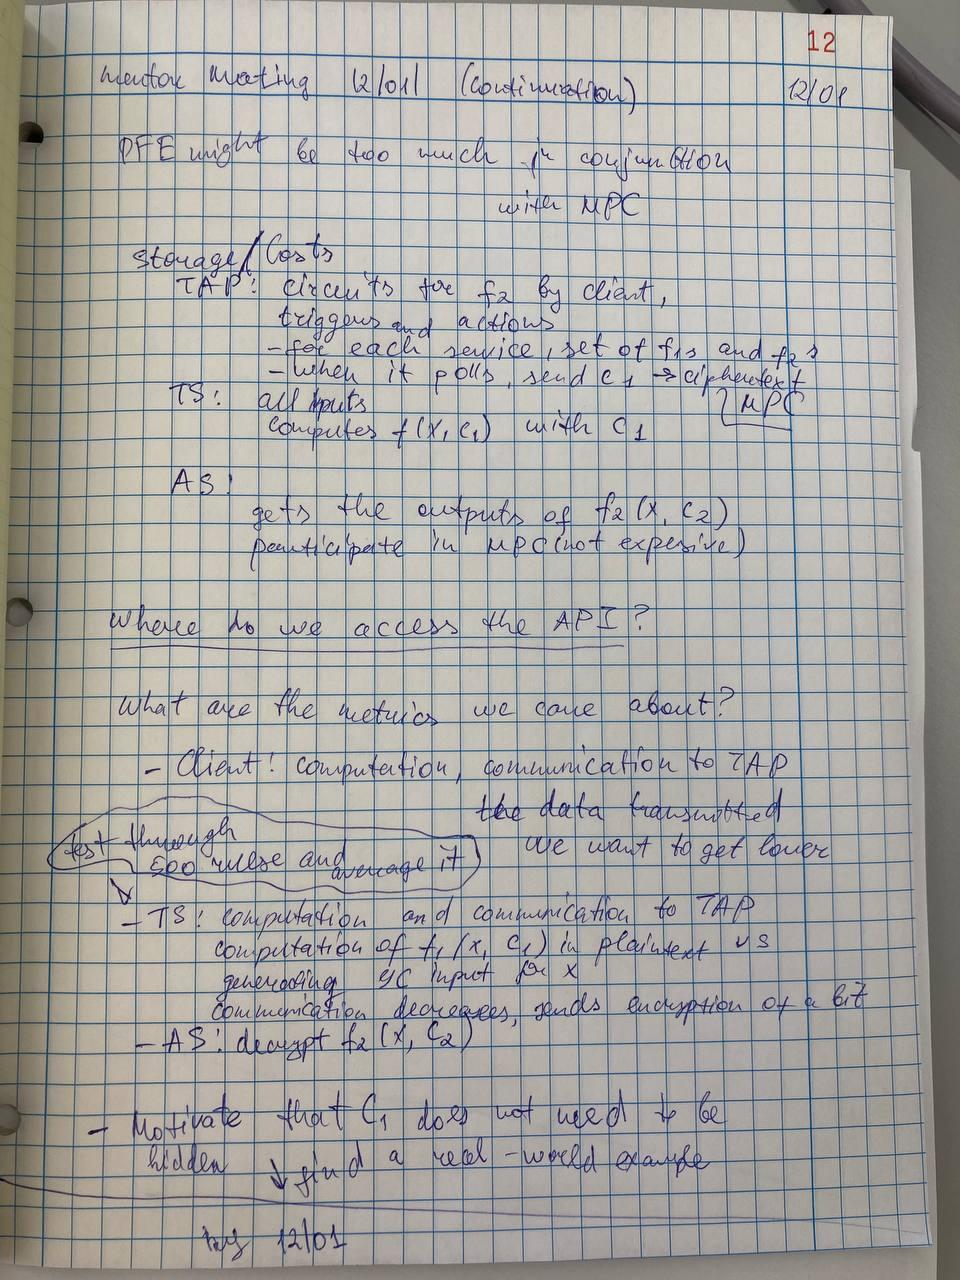 12
Mentor Meeting 12/01 (Continuation) 12/01
PFE might be too much in conjunction
with MPC
Storage/Costs
TAP: circuits for f2 by client,
triggers and actions
- for each service, set of f1s and f2s
- when it polls, send c1 → ciphertext
TS: all inputs MPC
computes f(x, c1) with c1
AS:
gets the outputs of f2(x, c2)
participate in MPC (not expesive)
Where do we access the API?
What are the metrics we care about?
- Client: computation, communication to TAP
the data transmitted
test through
500 and average it we want to get lower
- TS: computation and communication to TAP
computation of f1(x, c1) in plaintext vs
generating GC input for x
communication decreases, sends encryption of a bit
- AS: decrypt f2(x, c2)
- Motivate that C1 does not need to be
hidden ↓ find a real-world example
by 12/01